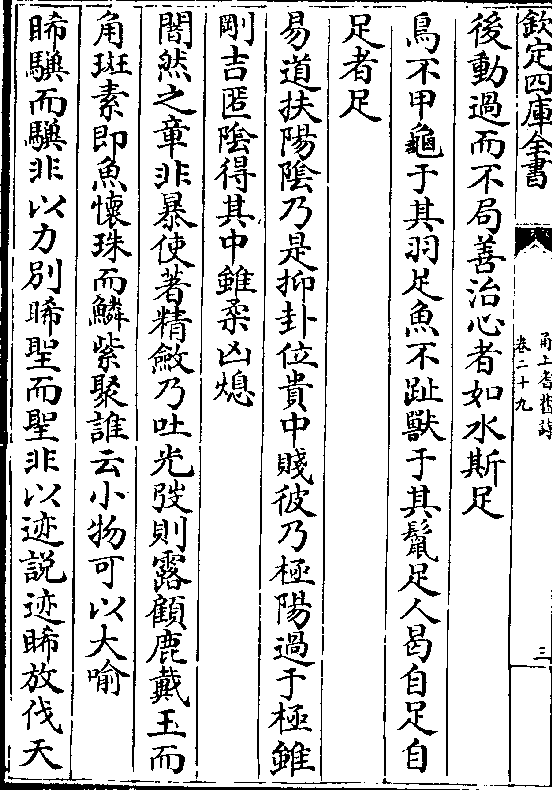 欽定四庫全書
甬上耆舊詩
卷二十九
三
後動過而不局善治心者如水斯足
鳥不甲龜于其羽足魚不趾獸于其鬣足人曷自足自
足者足
易道扶陽陰乃是抑卦位貴中賤彼乃極陽過于極雖
剛吉匿陰得其中雖柔凶熄
闇然之章非暴使著精斂乃吐光弢則露顧鹿戴玉而
角斑素即魚懷珠而鱗紫聚誰云小物可以大喻
睎驥而驥非以力別睎聖而聖非以迹説迹睎放伐天